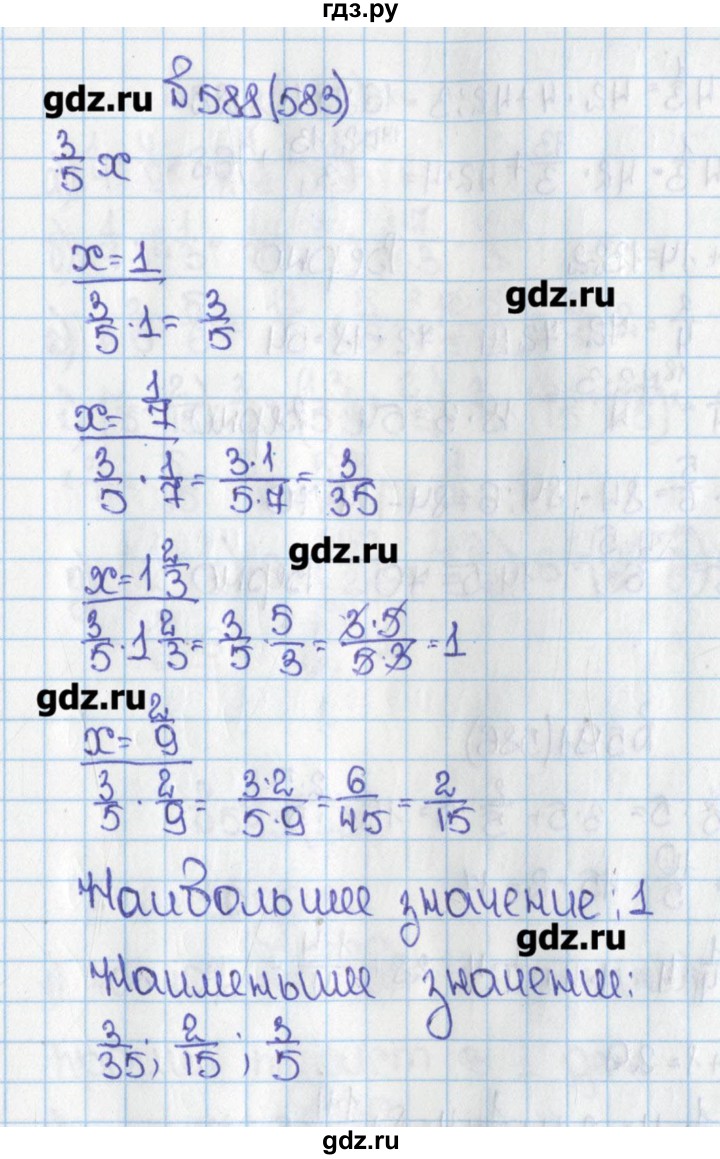 гдз.ру
gdz.ru
№ 588 (583)
3/5 x
x = 1
gdz.ru
3/5 · 1 = 3/5
x = 1/7
3/5 · 1/7 = 3·1/5·7 = 3/35
gdz.ru
x = 1 2/3
3/5 · 1 2/3 = 3/5 · 5/3 = 3·5/5·3 = 1
gdz.ru
x = 2/9
3/5 · 2/9 = 3·2/5·9 = 6/45 = 2/15
Наибольшее значение: 1
gdz.ru
Наименьшее значение:
3/35; 2/15; 3/5
gdz.ru